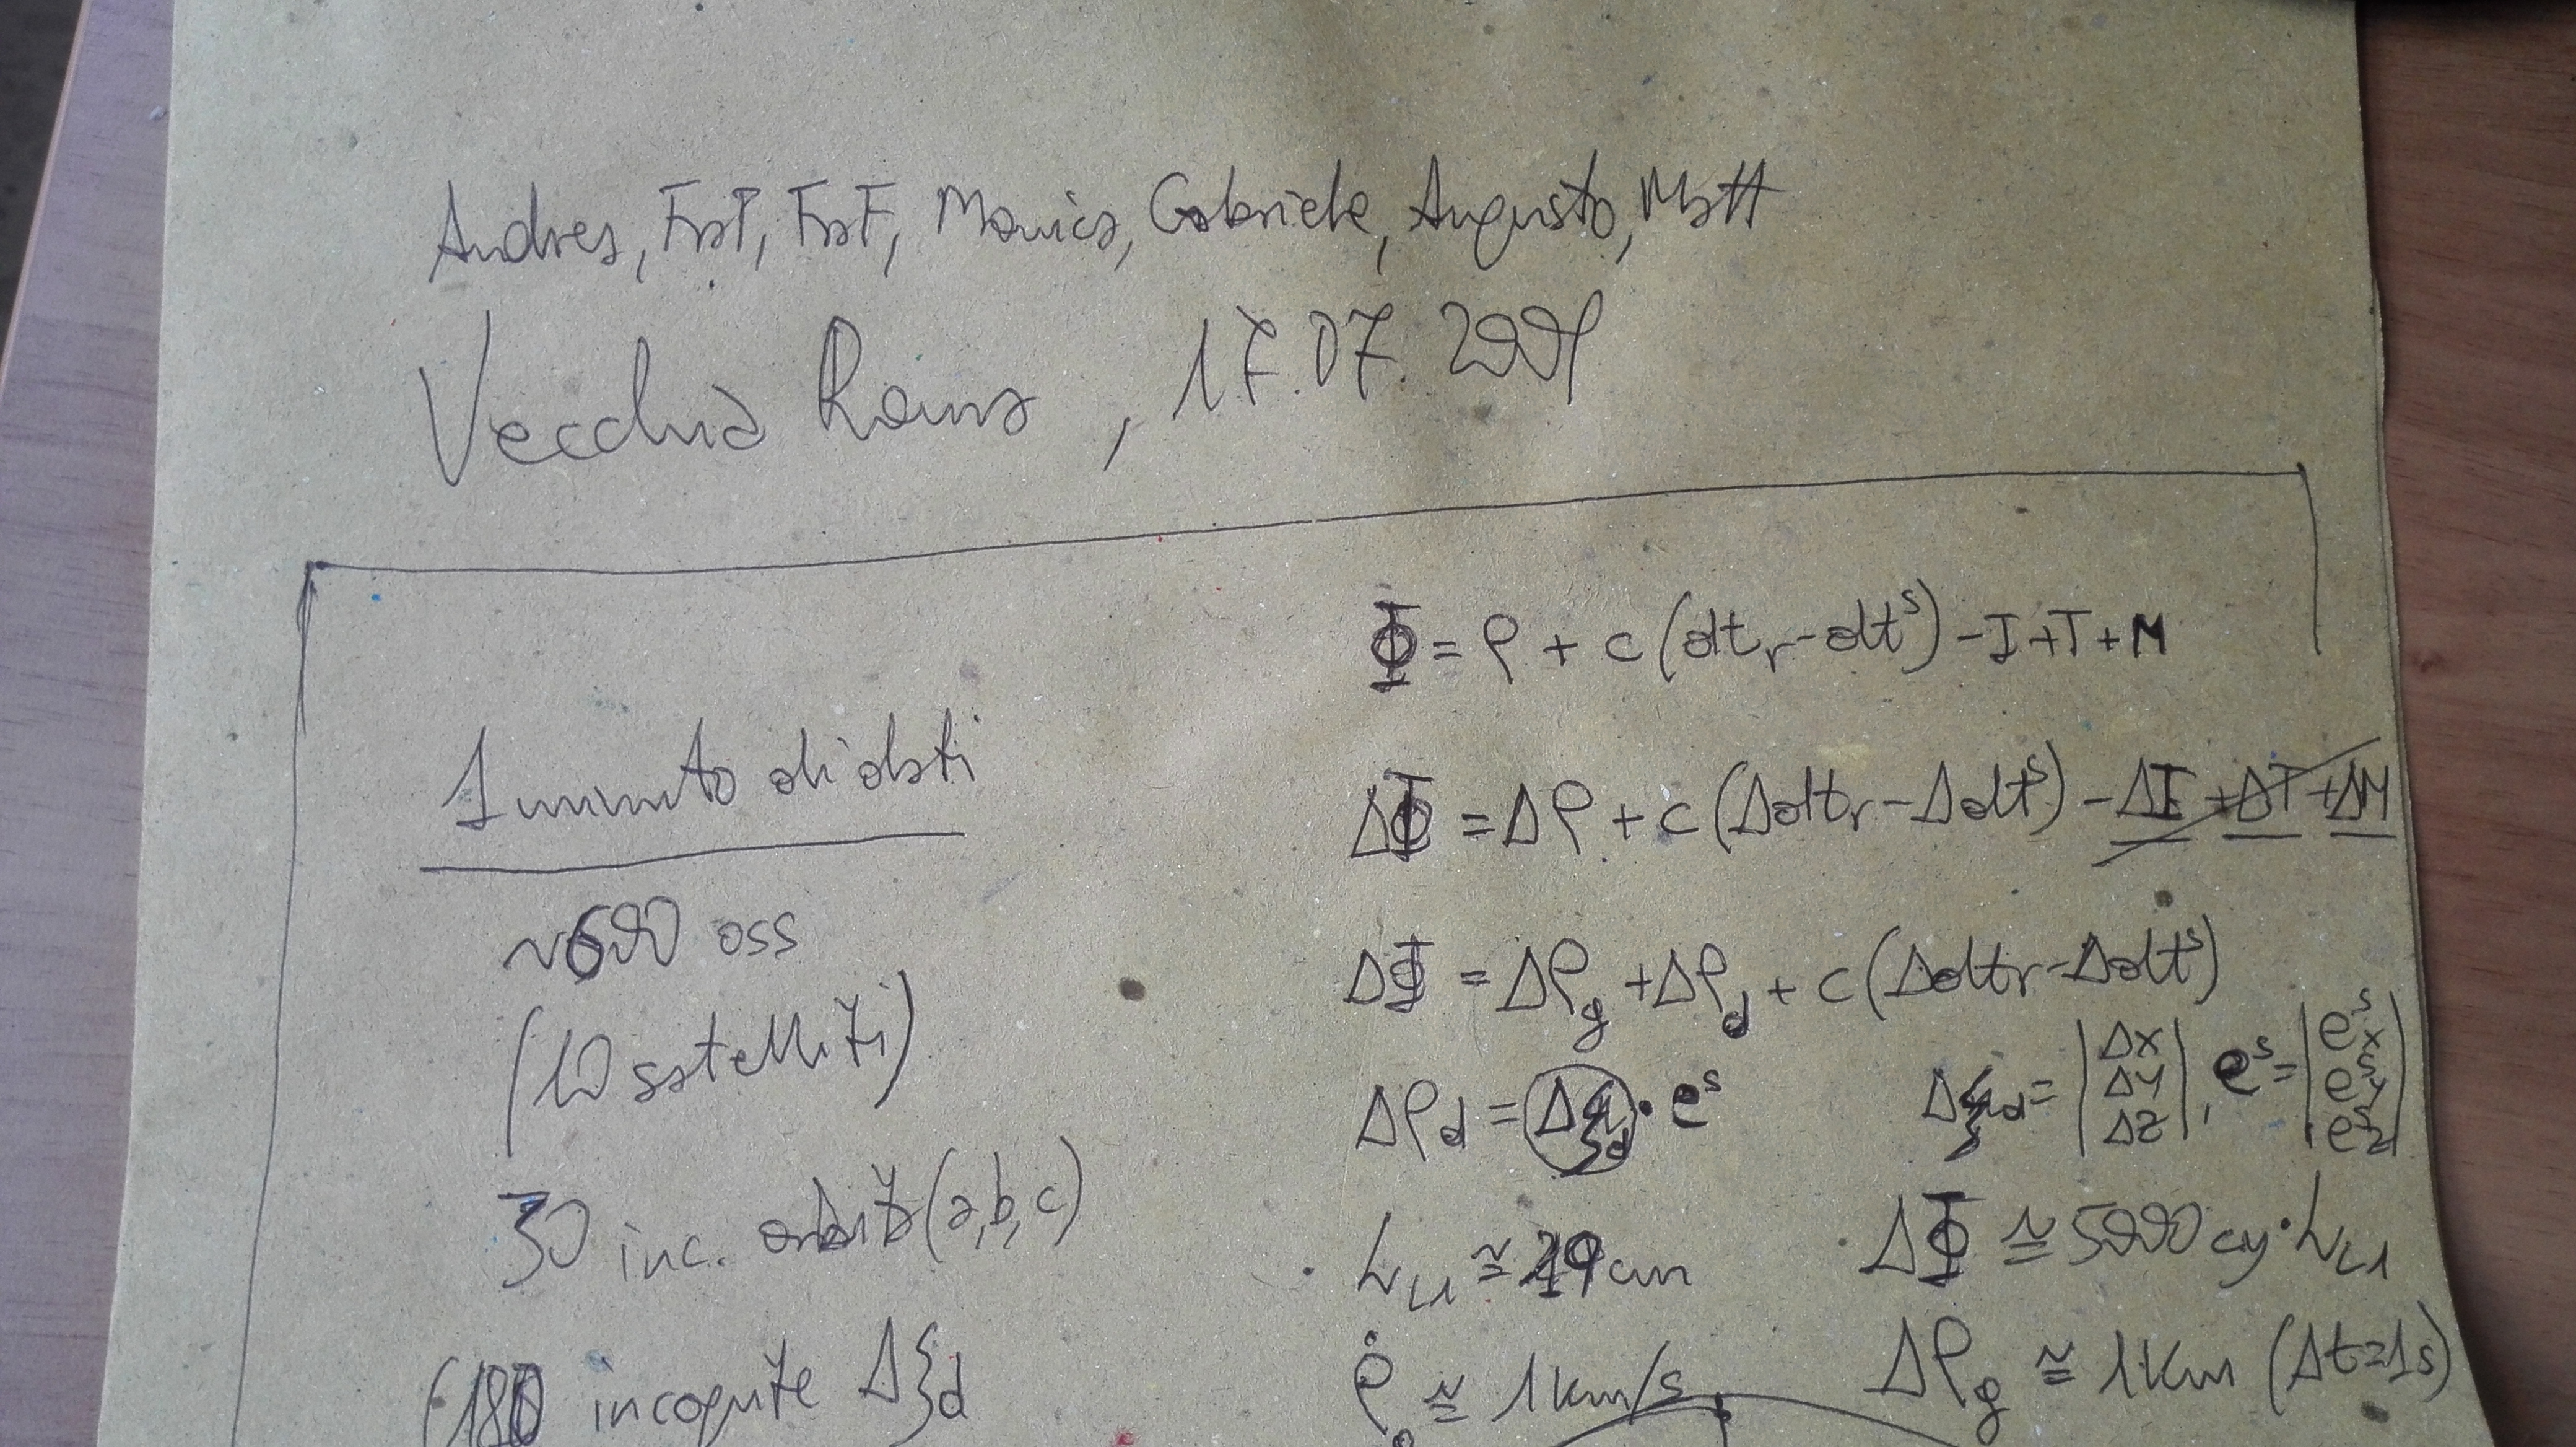 Andrea, FraT, FraF, Monica, Gabriele, Augusto, Matt
Vecchia Roma, 17.07.2009
1 minuto di dati
~600 oss
(10 satelliti)
30 inc. orbita (a,b,c)
(180 incognite Δξd
Φ = ρ + c(dtr - dt^s) - I + T + M
ΔΦ = Δρ + c(Δdtr - Δdt^s) - ΔI + ΔT + ΔM
ΔΦ = Δρg + Δρd + c(Δdtr - Δdt^s)
Δρd = Δξd · e^s   Δξd = |ΔX ΔY ΔZ|, e^s = |e^s_x e^s_y e^s_z|
λL1 ≅ 19 cm   ΔΦ ≅ 5000 cy · λL1
ρ̇ ≅ 1 km/s   Δρg ≅ 1 km (Δt=1s)